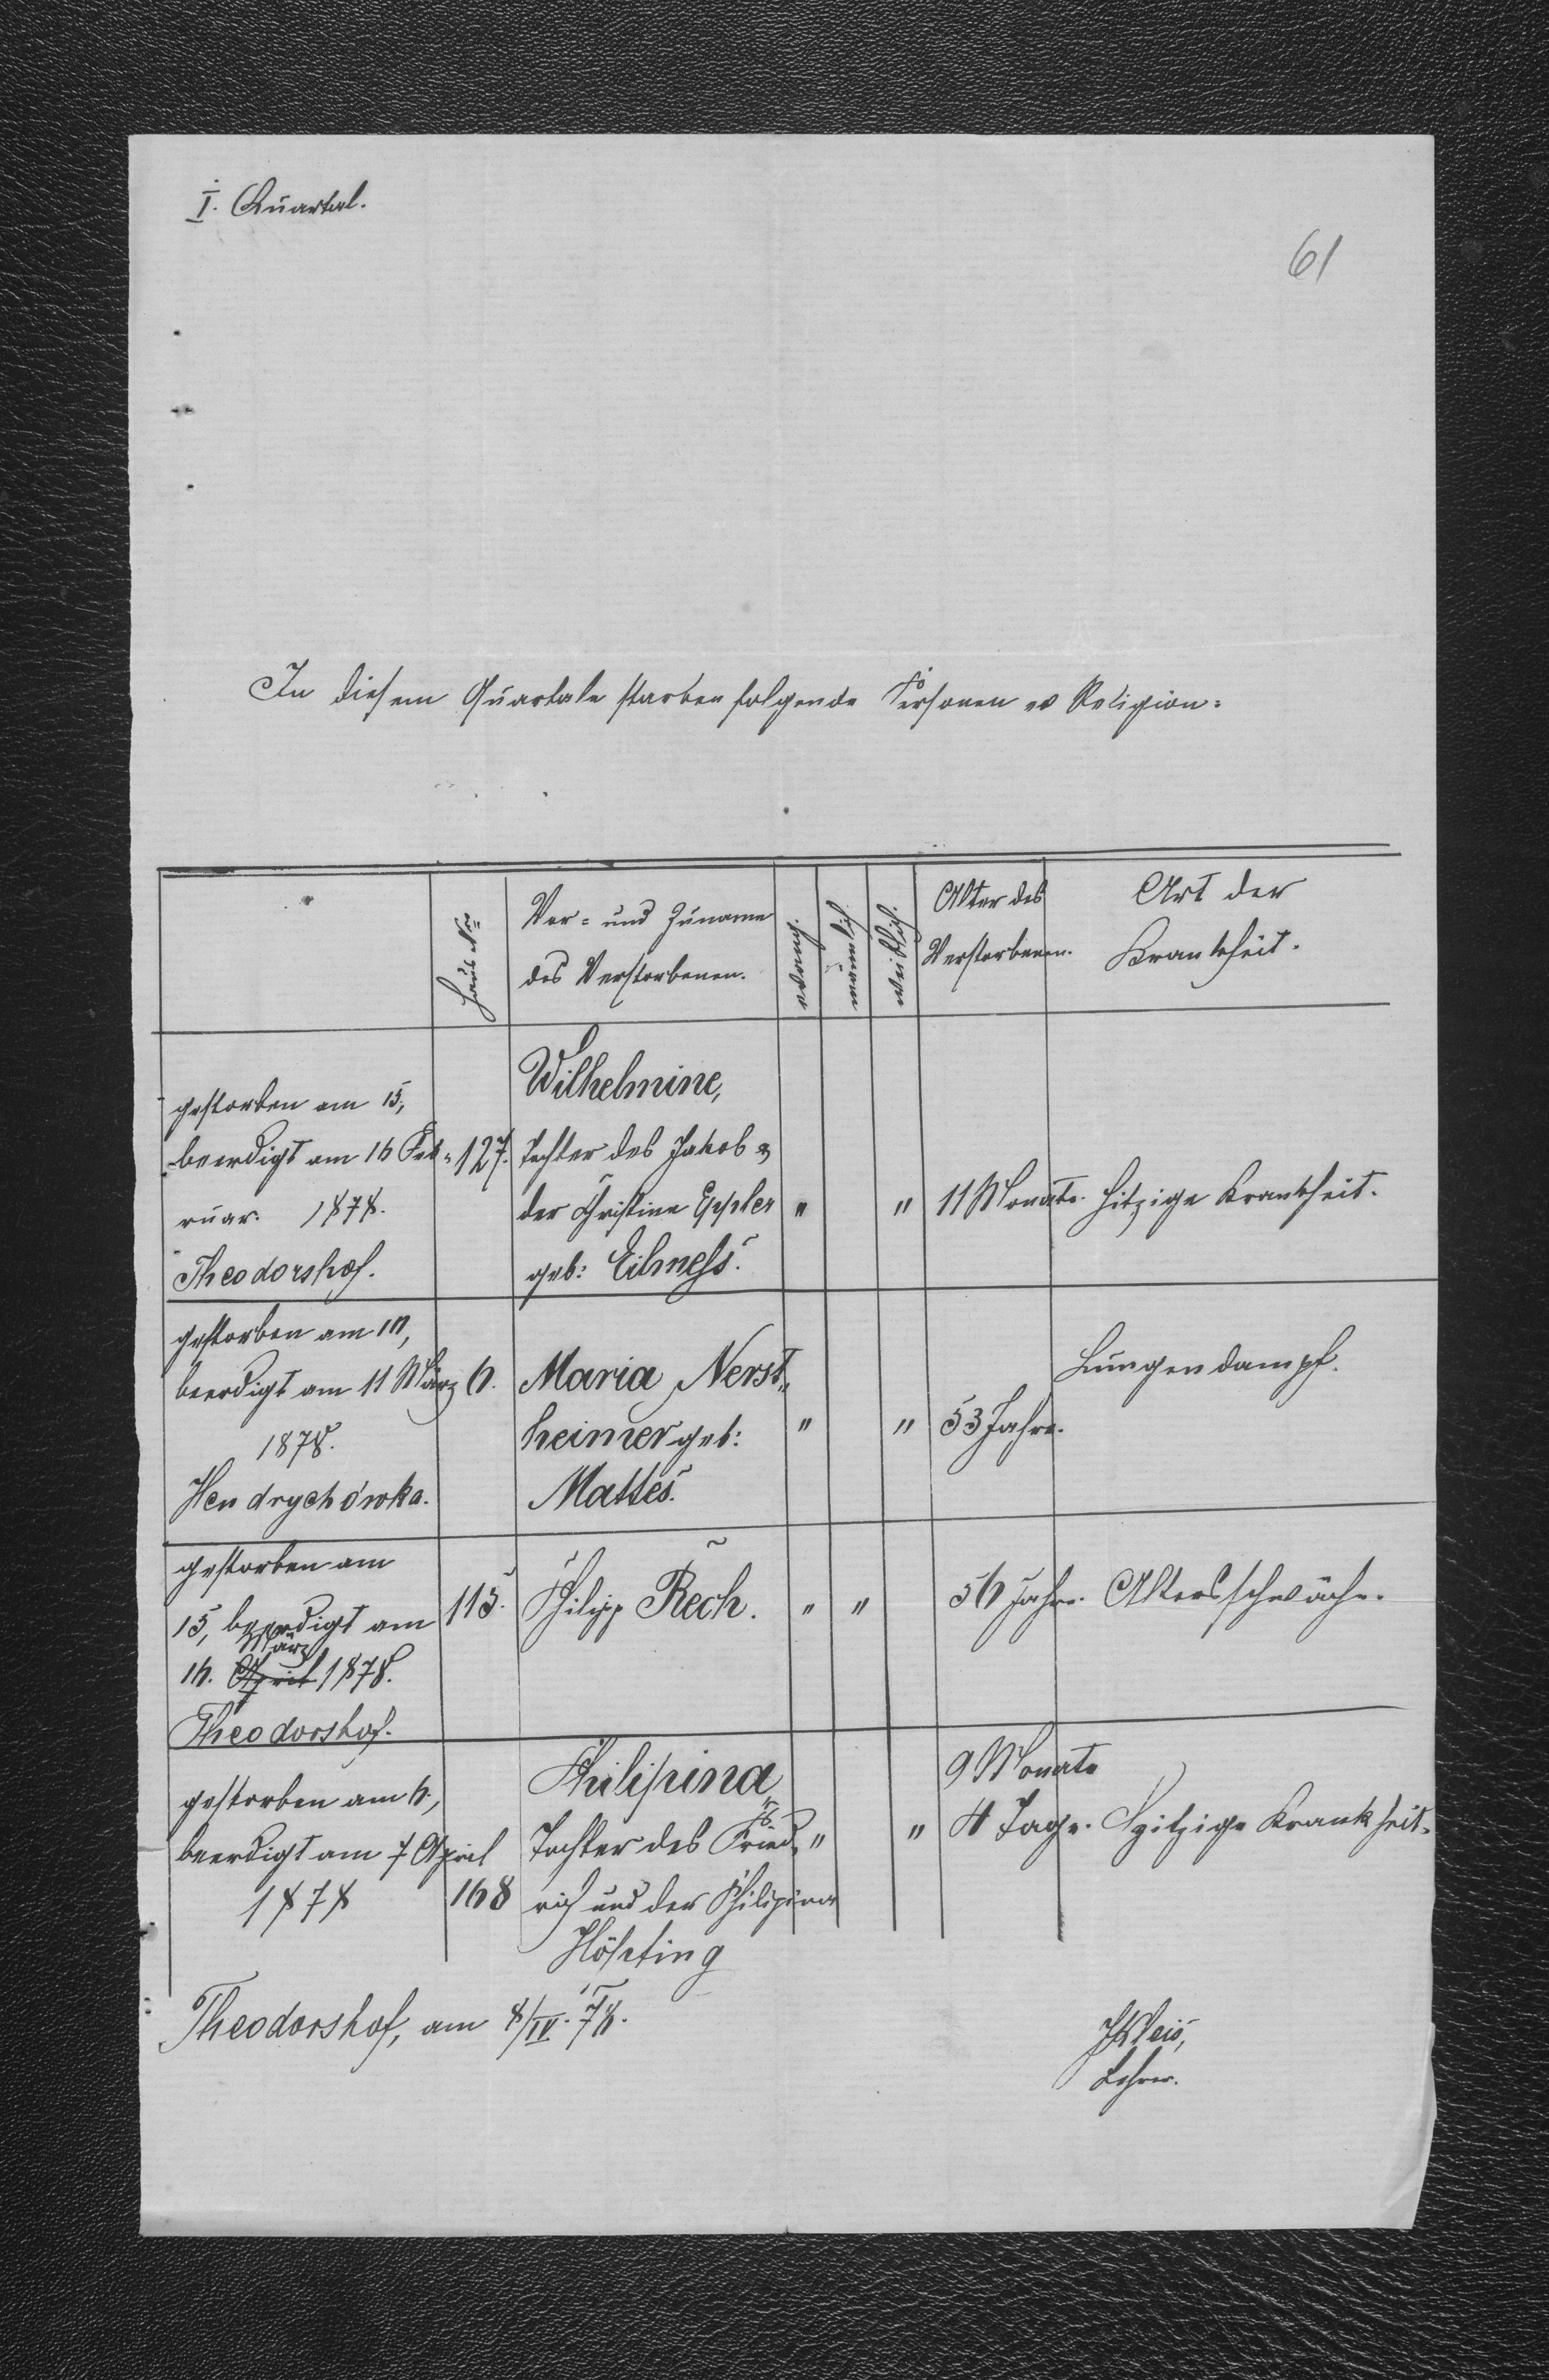 I. Quartal.
61
In diesem Quartale starben folgende Personen ev Religion:
Haus Nro
Vor- und Zuname
des Verstorbenen.
evang.
männlich
weiblich.
Alter des
Verstorbenen.
Art der
Krankheit.
gestorben am 15,
beerdigt am 16 Feb-
ruar. 1878.
Theodorshof.
127.
Wilhelmine,
Tochter des Jakob &
der Christine Eppler
geb: Eilmeß.
" "
11 Monate.
Hitzige Krankheit.
gestorben am 10,
beerdigt am 11 März
1878.
Hendrychówka.
6.
Maria Nerst„
heimer geb:
Mattes.
" "
53 Jahre.
Lungendampf.
gestorben am
15, beerdigt am
März
16. April 1878.
Theodorshof.
115.
Philipp Rech.
" "
56 Jahre.
Altersschwäche.
gestorben am 6,
beerdigt am 7 April
1878
168
Philipina
Tochter des Fried„
rich und der Philipina
" "
9 Monate
4 Tage.
Hitzige Krankheit.
Theodorshof, am 8/IV. 78.
Lehrer.